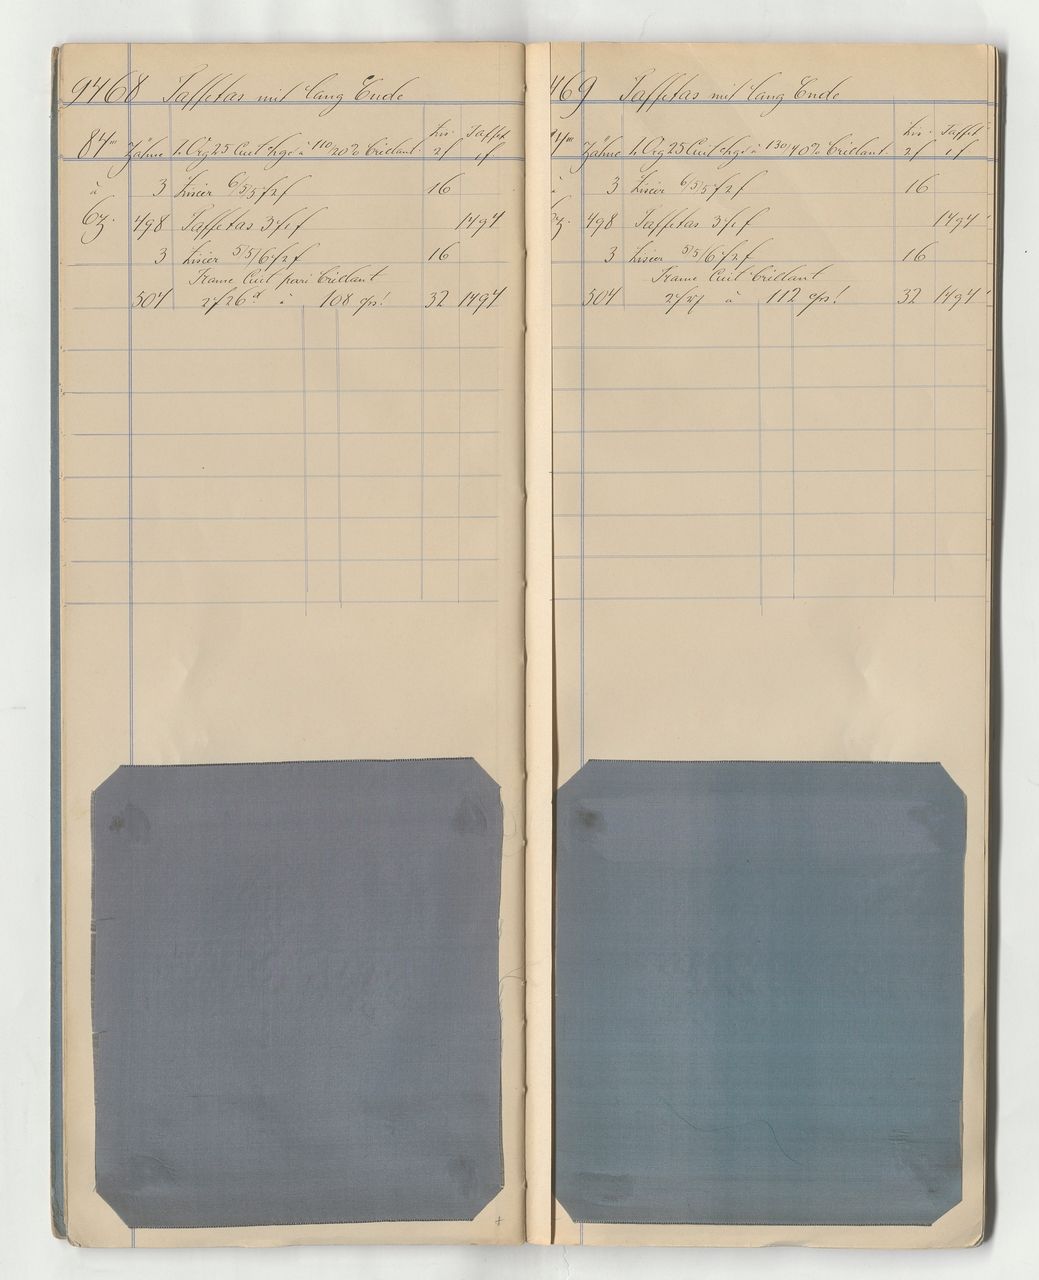 9468 Taffetas mit lang Ende
Lis. Taffet
84 Zähne 1. Org 25 Cuit chge à 110/20% brillant 2f 1f
à 3 Lisier 6/5/5 f 2f 16
63. 498 Taffetas 3 f 1 f 1494
3 Lisier 5/5/6 f 2 f 16
Trame Cuit pari brillant
504 à 108 cps! 32 1494
469 Taffetas mit lang Ende
Lis. Taffet
Zähne 1. Org 25 Cuit chge à 130/40% brillant 2f 1f
3 Lisier 6/5/5 f 2 f 16
498 Taffetas 3 f 1 f 1494
3 Lisier 5/5/6 f 2 f 16
Trame Cuit brillant
504 à 112 cps! 32 1494